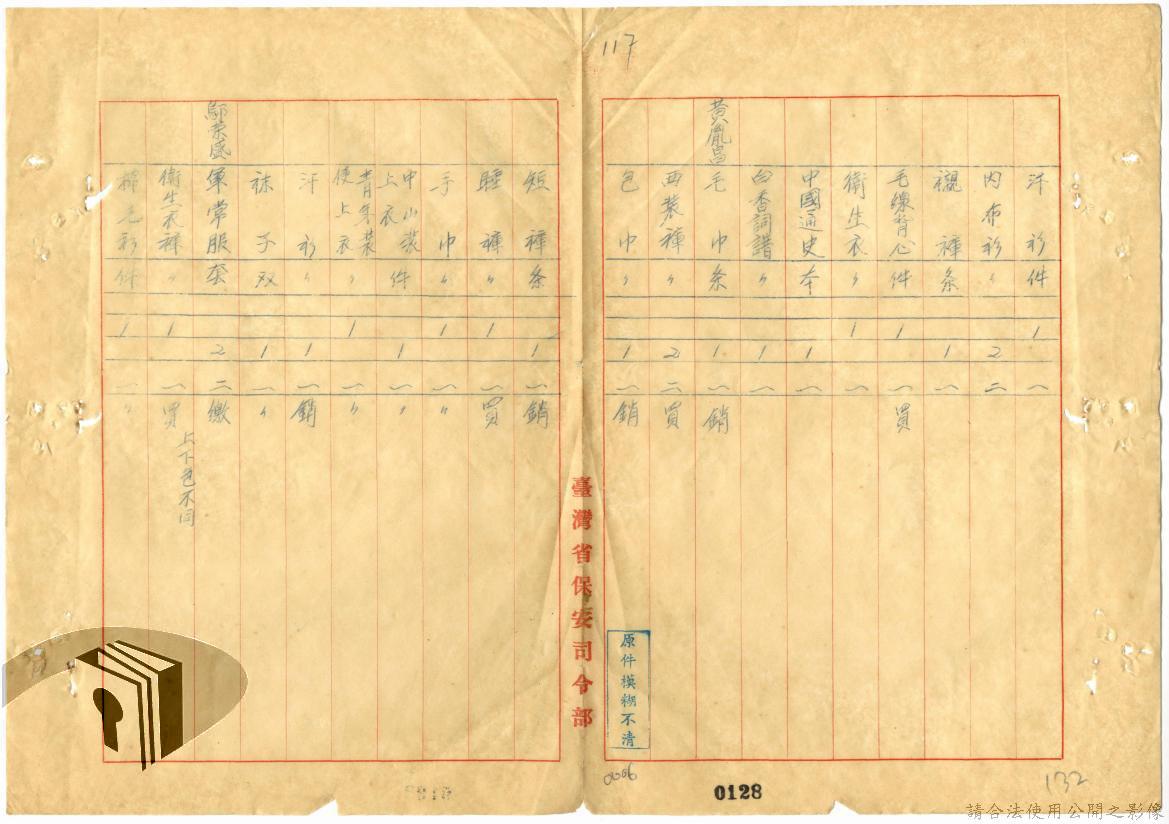 117
汗衫件 1 一
內布衫〃 2 二
襯褲条 1 一
毛線背心件 1 一 買
衛生衣〃 1 一
中國通史本 1 一
白香詞譜〃 1 一
黃胤昌 毛巾条 1 一 銷
西裝褲〃 2 二 買
包巾〃 1 一 銷
短褲条 1 一 銷
睡褲〃 1 一 買
手巾〃 1 一 〃
中山裝上衣件 1 一 〃
青年裝便上衣〃 1 一 〃
汗衫〃 1 一 銷
袜子双 1 一 〃
榮盛 軍常服套 2 二 繳
衛生衣褲〃 1 一 買 上下色不同
棉毛衫件 1 一 〃
臺灣省保安司令部
原件模糊不清
0128
132
請合法使用公開之影像